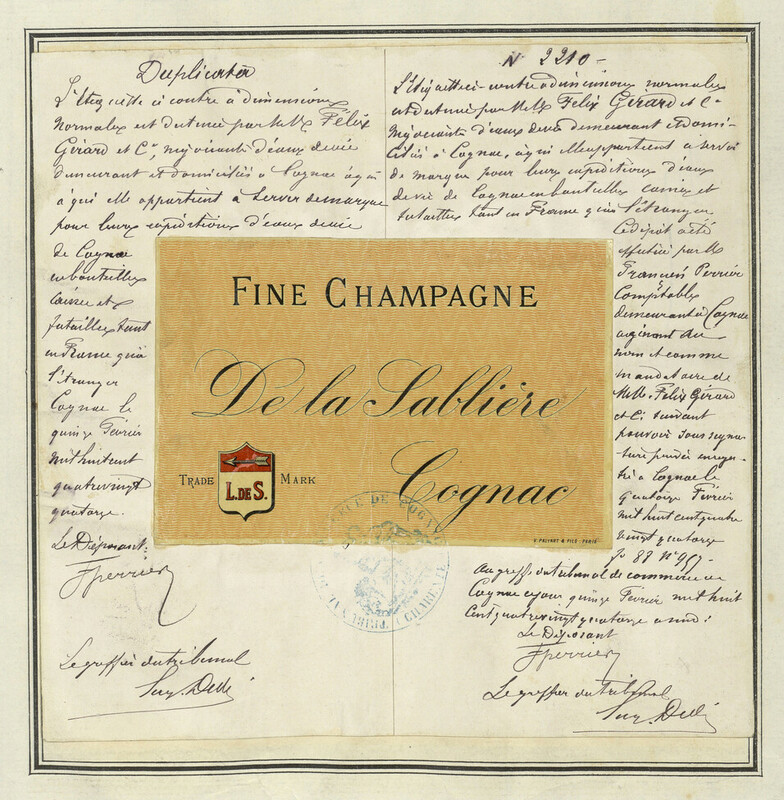 Duplicata
L'étiquette ci contre à dimensions
Normales est destinée par MM. Félix
Gérard et Cie, négociants d'eaux de vie
demeurant et domiciliés à Cognac
à qui elle appartient à servir de marque
pour leurs expéditions d'eaux de vie
de Cognac
en bouteilles
caisses et
futailles tant
en France qu'à
l'étranger
Cognac le
quinze Février
mil huit cent
quatre vingt
quatorze.
Le Déposant:
F Perrier
Le greffier du tribunal
N 2210-
L'étiquette ci-contre à dimensions normales
est destinée par MM. Félix Gérard et Cie
Négociants d'eaux de vie demeurant et domi-
ciliés à Cognac, à qui elle appartient à servir
de marque pour leurs expéditions d'eaux
de vie de Cognac en bouteilles caisses et
futailles tant en France qu'à l'étranger
Ce dépôt a été
effectué par M
Francis Perrier
Comptable
demeurant à Cognac
agissant au
nom et comme
mandataire de
MM. Félix Gérard
et Cie suivant
pouvoir sous signa-
ture privée enregis-
tré à Cognac le
quatorze Février
mil huit cent quatre
vingt quatorze
fo 88 No
Au greffe du tribunal de commerce de
Cognac ce jour quinze Février mil huit
cent quatre vingt quatorze
Le Déposant
F Perrier
Le greffier du tribunal
FINE CHAMPAGNE
De la Sablière
Cognac
TRADE MARK
L. DE S.